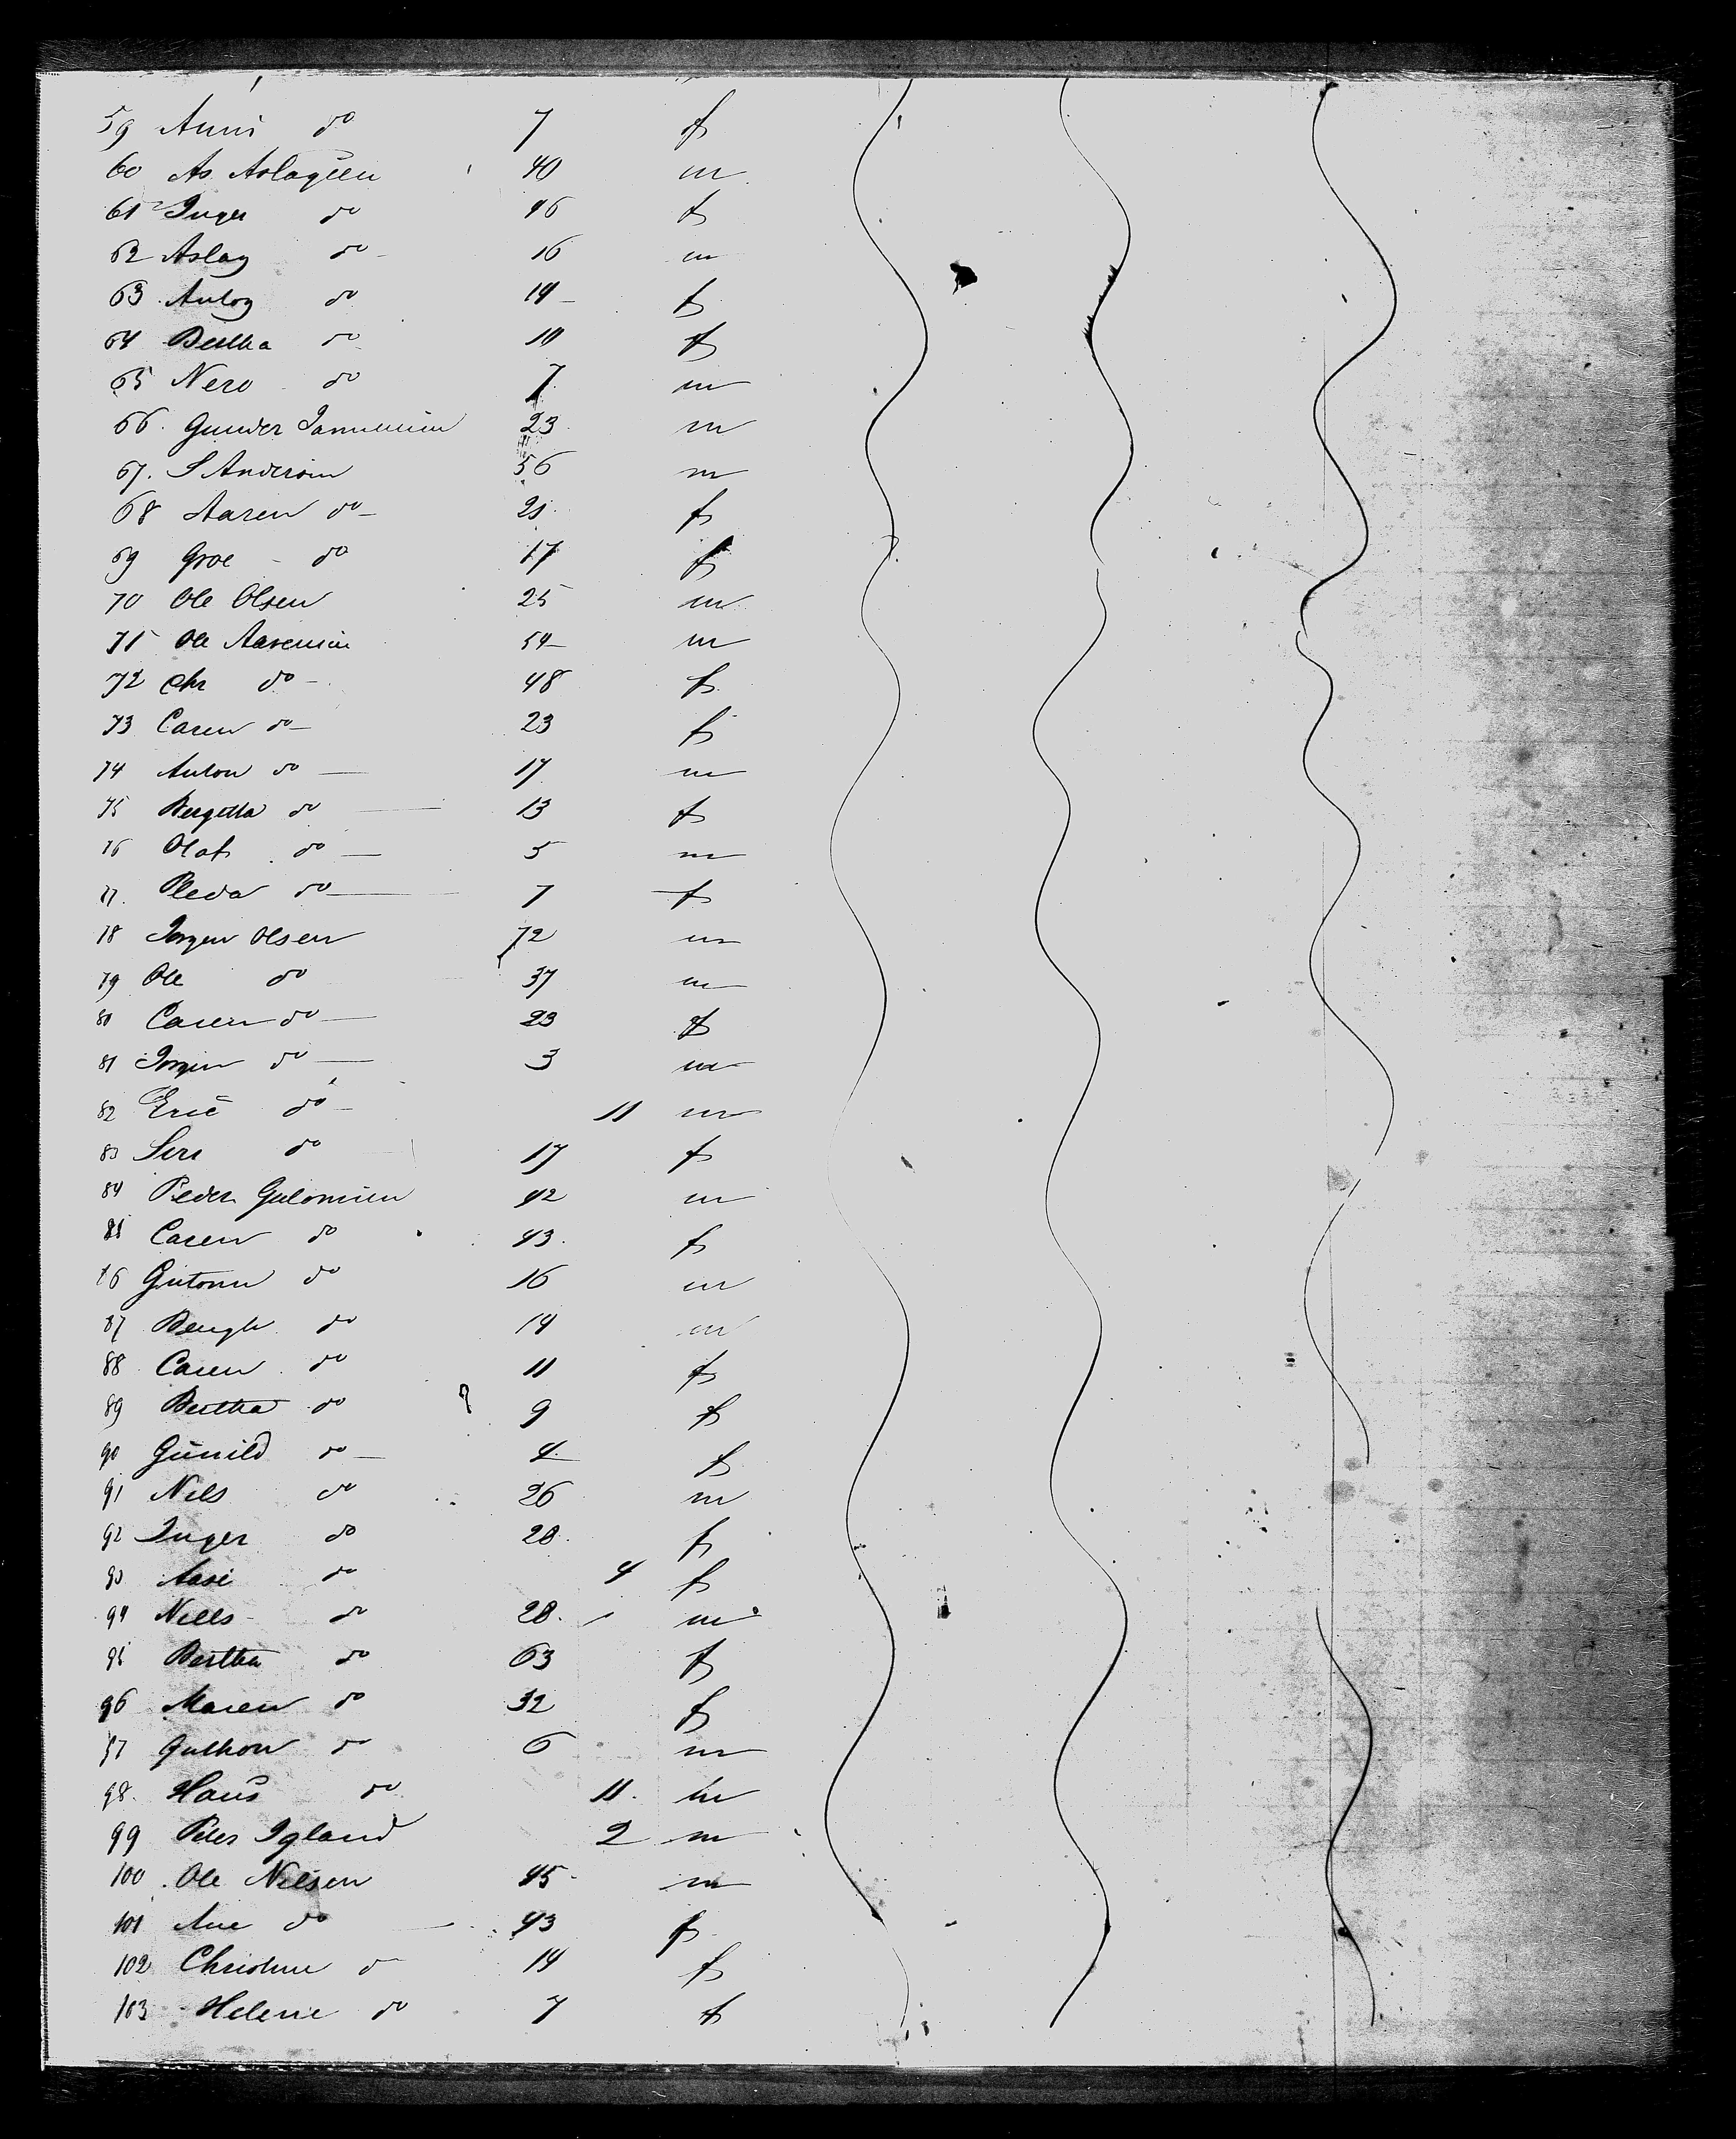 59 Anni do 7 f
60 As. Aslagsen 40 m
61 Inger do 46 f
62 Aslag do 16 m
63 Aslog do 14 f
64 Bertha do 10 f
65 Nero do 7 m
66 Gunder 23 m
67. S Andersin 56 m
68 Aaren do 21 f
69 Groe do 17 f
70 Ole Olsen 25 m
71 Ole Aarensin 54 m
72 Chr do 48 f
73 Caren do 23 f
74 Anton do 17 m
75 Bergitta do 13 f
76 Olaf do 5 m
77. do 7 f
78 Jorgen Olsen 72 m
79 Ole do 37 m
80 Caren do 23 f
81 Jorgen do 3 m
82 Eric do 11 m
83 Seri do 17 f
84 Peder 42 m
85 Caren do 43 f
86 do 16 m
87 do 14 m
88 Caren do 11 f
89 Bertha do 9 f
90 Gunild do 4 f
91 Nils do 26 m
92 Inger do 28 f
93 Aase do 4 f
94 Nells do 28 m
95 Bertha do 63 f
96 Maren do 32 f
97 do 6 m
98. Hans do 11. m
99 Peter Igland 2 m
100 Ole Nielsen 45 m
101 Ane do 43 f
102 Christine do 14 f
103 Helene do 7 f